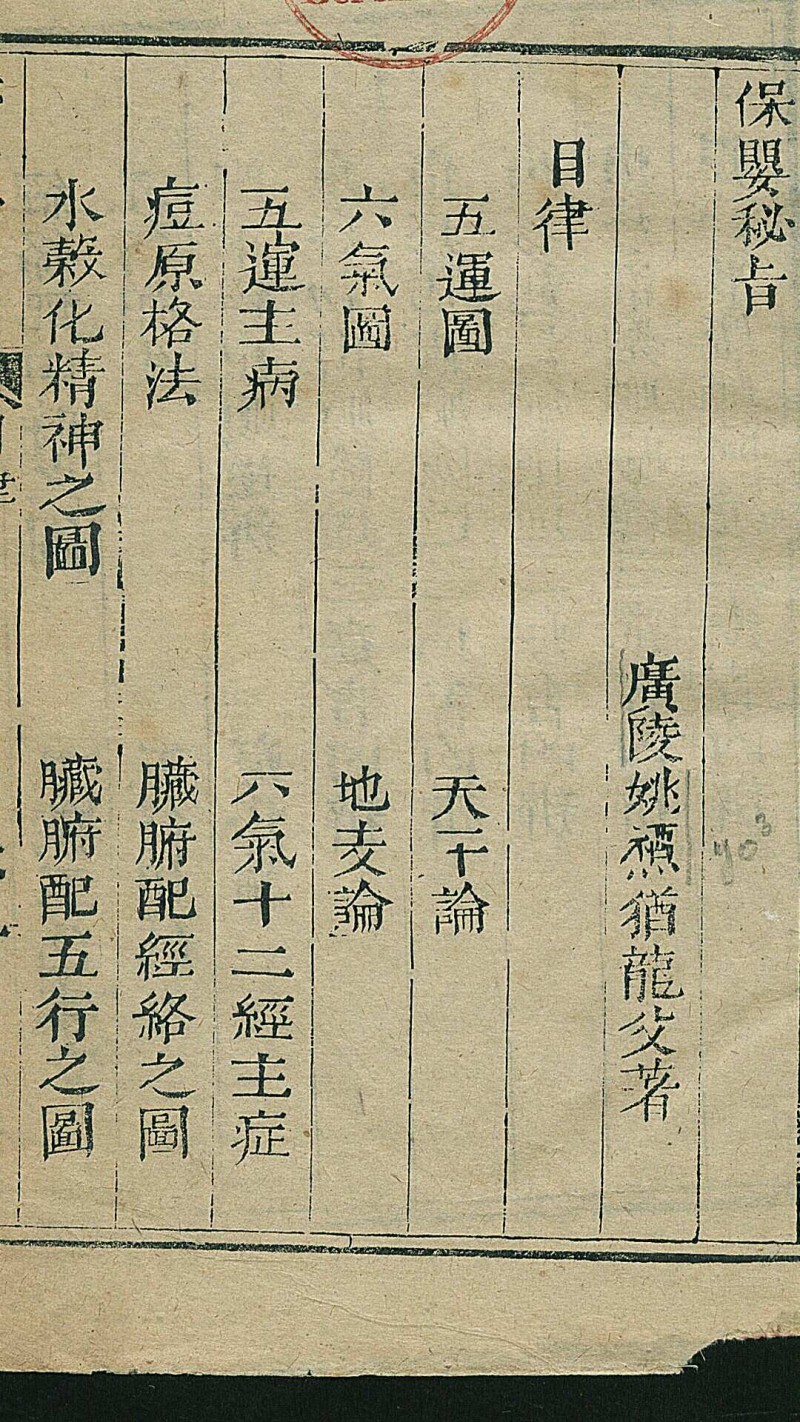 保嬰秘旨
廣陵姚襾猶龍父著
目律
五運圖 天干論
六氣圖 地支論
五運主病 六氣十二經主症
痘原格法 臟腑配經絡之圖
水榖化精神之圖 臟腑配五行之圖
403